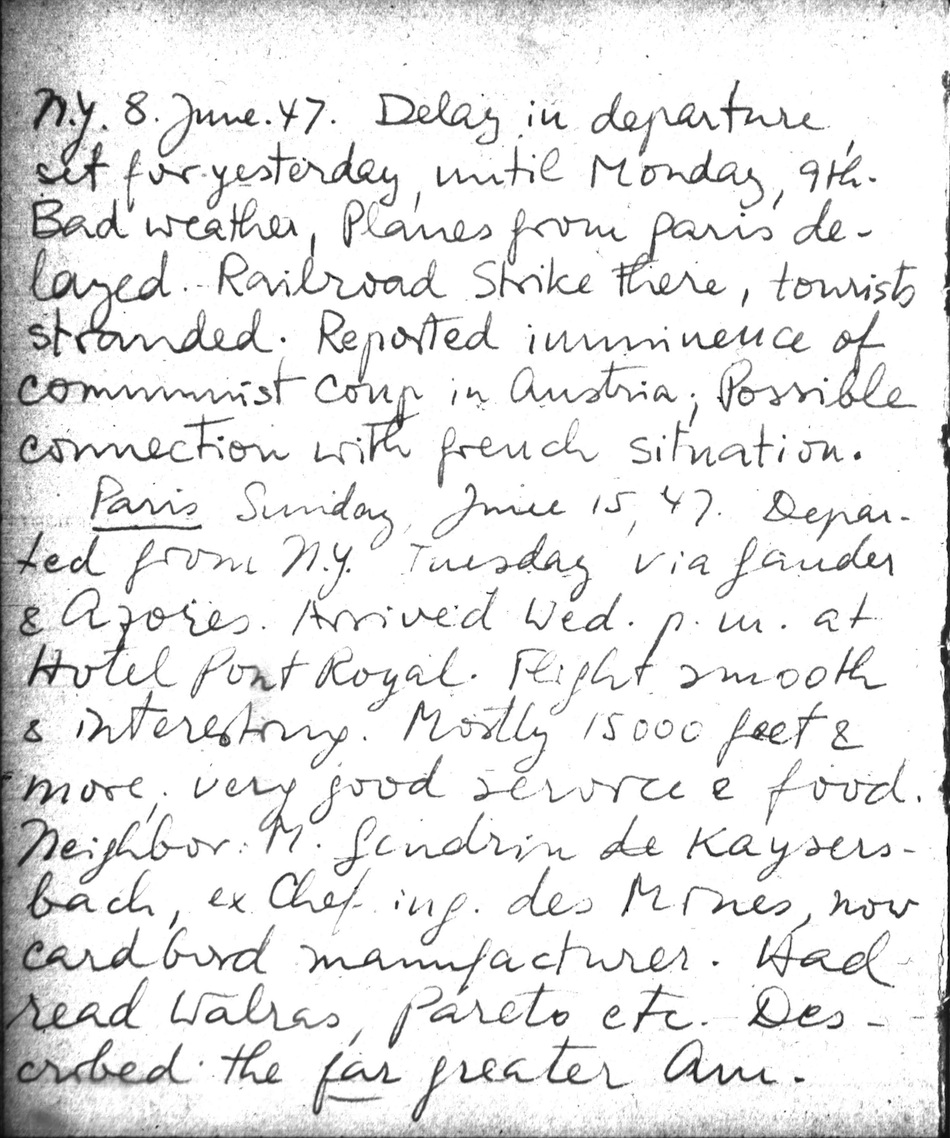 N.Y. 8. June. 47. Delay in departure
set for yesterday, until Monday, 9th.
Bad weather, Planes from paris de-
layed. Railroad Strike there, tourists
stranded. Reported imminence of
communist coup in Austria; Possible
connection with french situation.
Paris Sunday, June 15, 47. Depar-
ted from N.Y. Tuesday via Gander
& Azores. Arrived Wed. p.m. at
Hotel Pont Royal. Flight smooth
& interesting. Mostly 15000 feet &
more, very good service & food.
Neighbor: M. Gendrin de Kaysers-
bach, ex Chef ing. des Mines, now
cardbord manufacturer. Had
read Walras, Pareto etc. Des-
cribed the far greater Am.